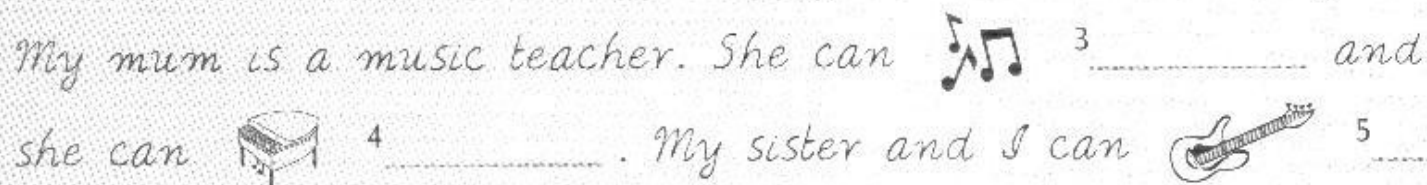 My mum is a music teacher. She can 3 and
she can 4 . My sister and I can 5